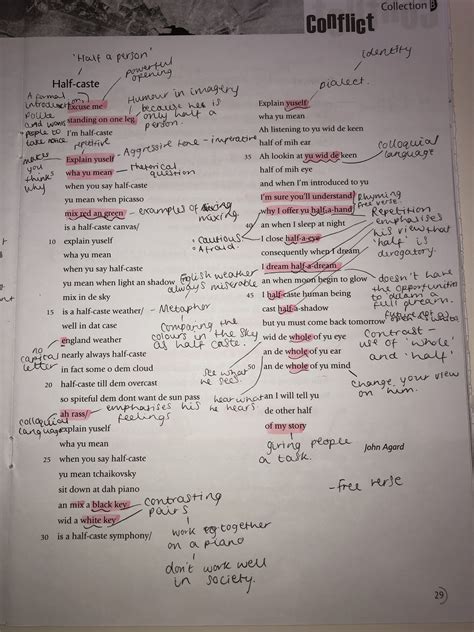 Collection
Conflict
'Half a person'
Half-caste
powerful opening
identity
dialect.
A formal introduction
Polite and wants people to take notice
Humour in imagery because he is only half a person.
Excuse me
standing on one leg
I'm half-caste
repetitive
Aggressive tone - imperative
makes you think why
Explain yuself
wha yu mean
Rhetorical question
5 when you say half-caste
yu mean when picasso
mix red an green
- examples of mixing
is a half-caste canvas/
10 explain yuself
wha yu mean
when yu say half-caste
yu mean when light an shadow
mix in de sky
English weather always miserable
15 is a half-caste weather/
- Metaphor
well in dat case
Comparing the colours in the sky as half caste.
no capital letter
england weather
nearly always half-caste
in fact some o dem cloud
20 half-caste till dem overcast
so spiteful dem dont want de sun pass
ah rass/
emphasises his feelings
colloquial language
explain yuself
wha yu mean
25 when yu say half-caste
yu mean tchaikovsky
sit down at dah piano
an mix a black key
wid a white key
contrasting pairs
30 is a half-caste symphony/
work together on a piano
don't work well in society.
Explain yuself
wha yu mean
Ah listening to yu wid de keen
half of mih ear
35 Ah lookin at yu wid de keen
colloquial language
half of mih eye
and when I'm introduced to yu
I'm sure you'll understand
why I offer yu half-a-hand
Rhyming
free verse.
40 an when I sleep at night
cautious
Afraid.
I close half-a-eye
Repetition emphasises his view that 'half' is derogatory.
consequently when I dream
I dream half-a-dream
an when moon begin to glow
doesn't have the opportunities to dream a full dream.
45 I half-caste human being
cast half-a-shadow
but yu must come back tomorrow
wid de whole of yu eye
an de whole of yu ear
an de whole of yu mind
Contrast - use of 'whole' and 'half'
see what he sees.
hear what he hears
change your view on him.
an I will tell yu
de other half
of my story
giving people a task.
John Agard
- free verse
29